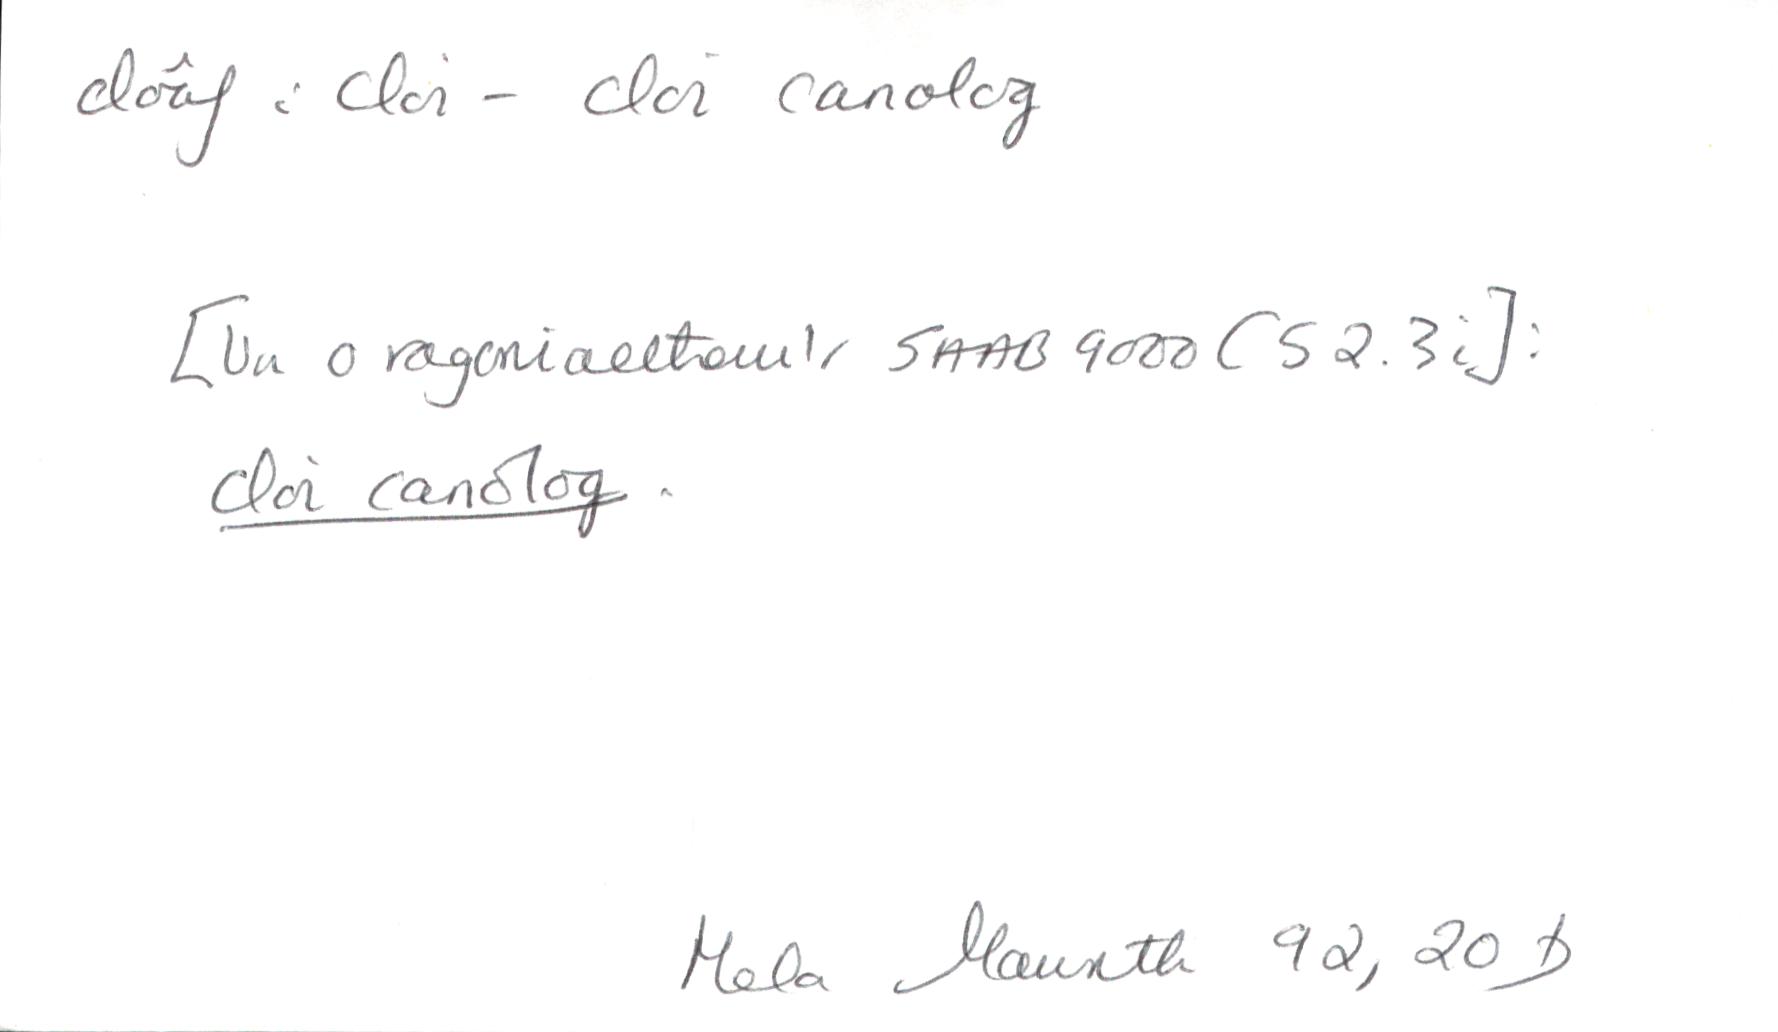 cloâf : Cloi - cloi canolog
[Un o ragoriaethau'r SAAB 9000 CS 2.3i]:
cloi canolog.
Mela Mawrth 92, 20 b